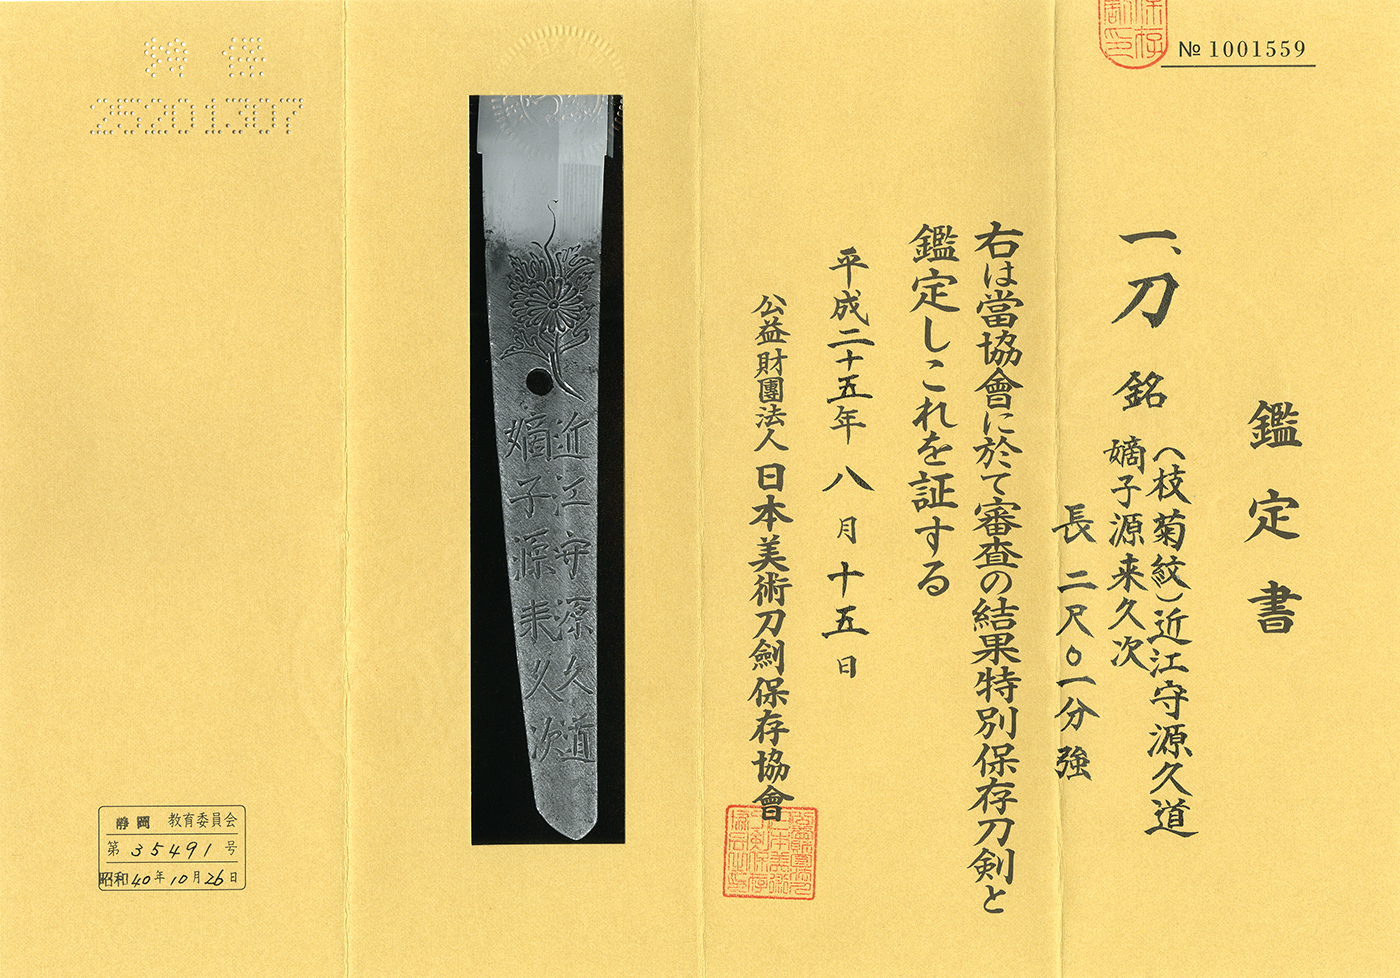 № 1001559
鑑定書
一、刀 銘 (枝菊紋)近江守源久道
嫡子源来久次
長 二尺〇一分強
右は當協會に於て審査の結果特別保存刀剣と
鑑定しこれを証する
平成二十五年八月十五日
公益財團法人 日本美術刀劍保存協會
近江守源久道
嫡子源来久次
特保
25201307
静岡 教育委員会
第 35491 号
昭和40年10月26日